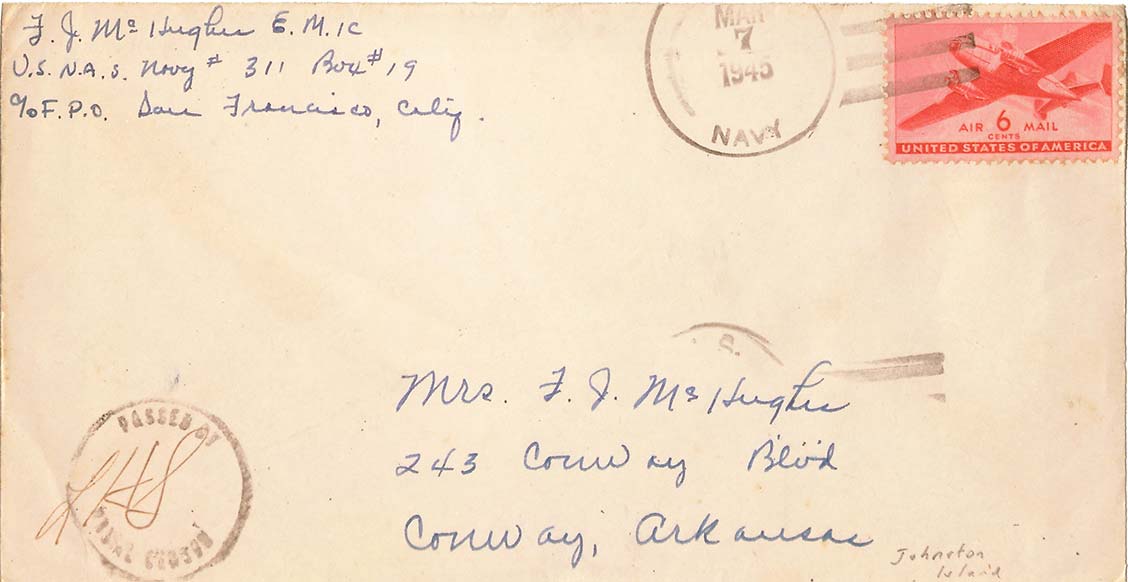 F. J. McHughes E.M.1C
U.S.N.A.S. Navy # 311 Box #19
c/o F.P.O. San Francisco, Calif.
MAR
7
1945
NAVY
AIR 6 MAIL
CENTS
UNITED STATES OF AMERICA
S.
Mrs. F. J. McHughes
243 Conway Blvd
Conway, Arkansas
PASSED BY
LHS
NAVAL CENSOR
Johnston
Island